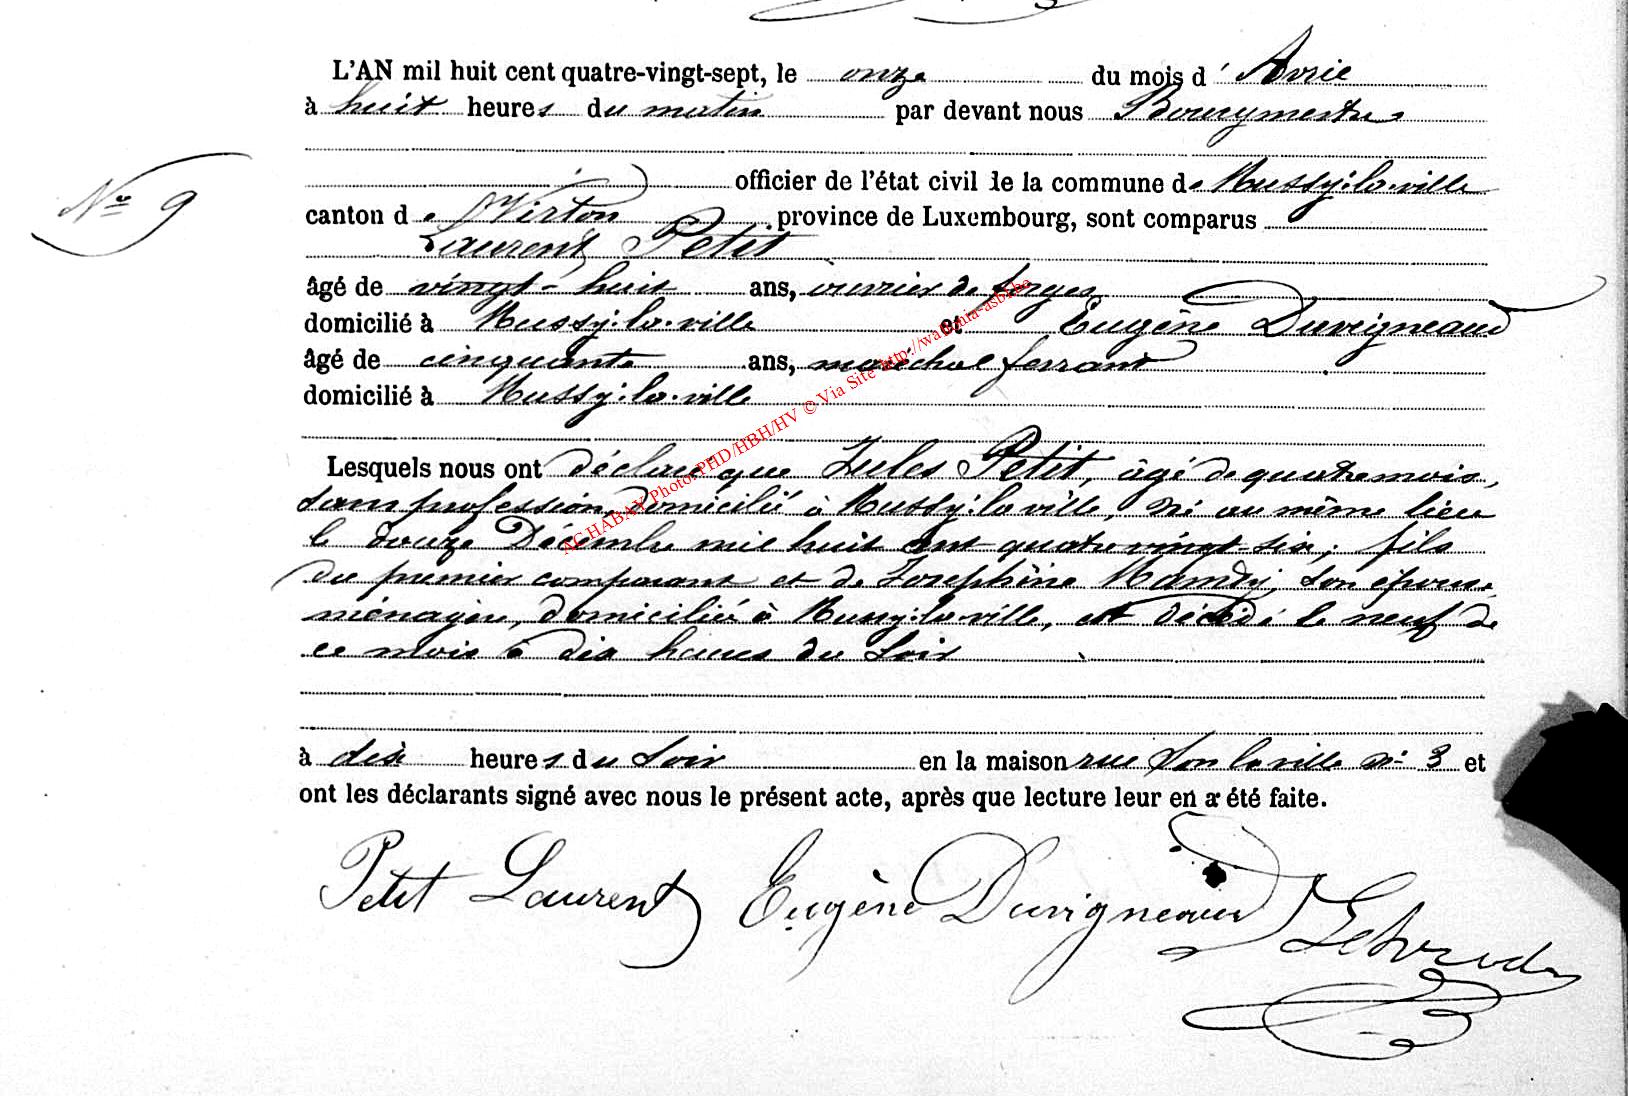 L'AN mil huit cent quatre-vingt-sept, le onze du mois d' Avril
à huit heures du matin par devant nous Bourgmestre
officier de l'état civil de la commune de Mussy-la-ville
Nº 9
canton de Virton province de Luxembourg, sont comparus
Laurent Petit
âgé de vingt-huit ans, ouvrier de forges
domicilié à Mussy-la-ville et Eugène Duvigneaud
âgé de cinquante ans, maréchal ferrant
domicilié à Mussy-la-ville
Lesquels nous ont déclaré que Jules Petit, âgé de quatre mois,
sans profession, domicilié à Mussy-la-ville, né au même lieu
le douze Décembre mil huit cent quatre vingt-six, fils
du premier comparant et de Joséphine Mandy, son épouse,
ménagère, domiciliée à Mussy-la-ville, est décédé le neuf de
ce mois à dix heures du soir
à dix heures du soir en la maison rue Son la ville Nº 3 et
ont les déclarants signé avec nous le présent acte, après que lecture leur en a été faite.
Petit Laurent Eugène Duvigneaud
ACHABAY Photos PHD/HBH/HV © Via Site http://wallonia-asbl.be